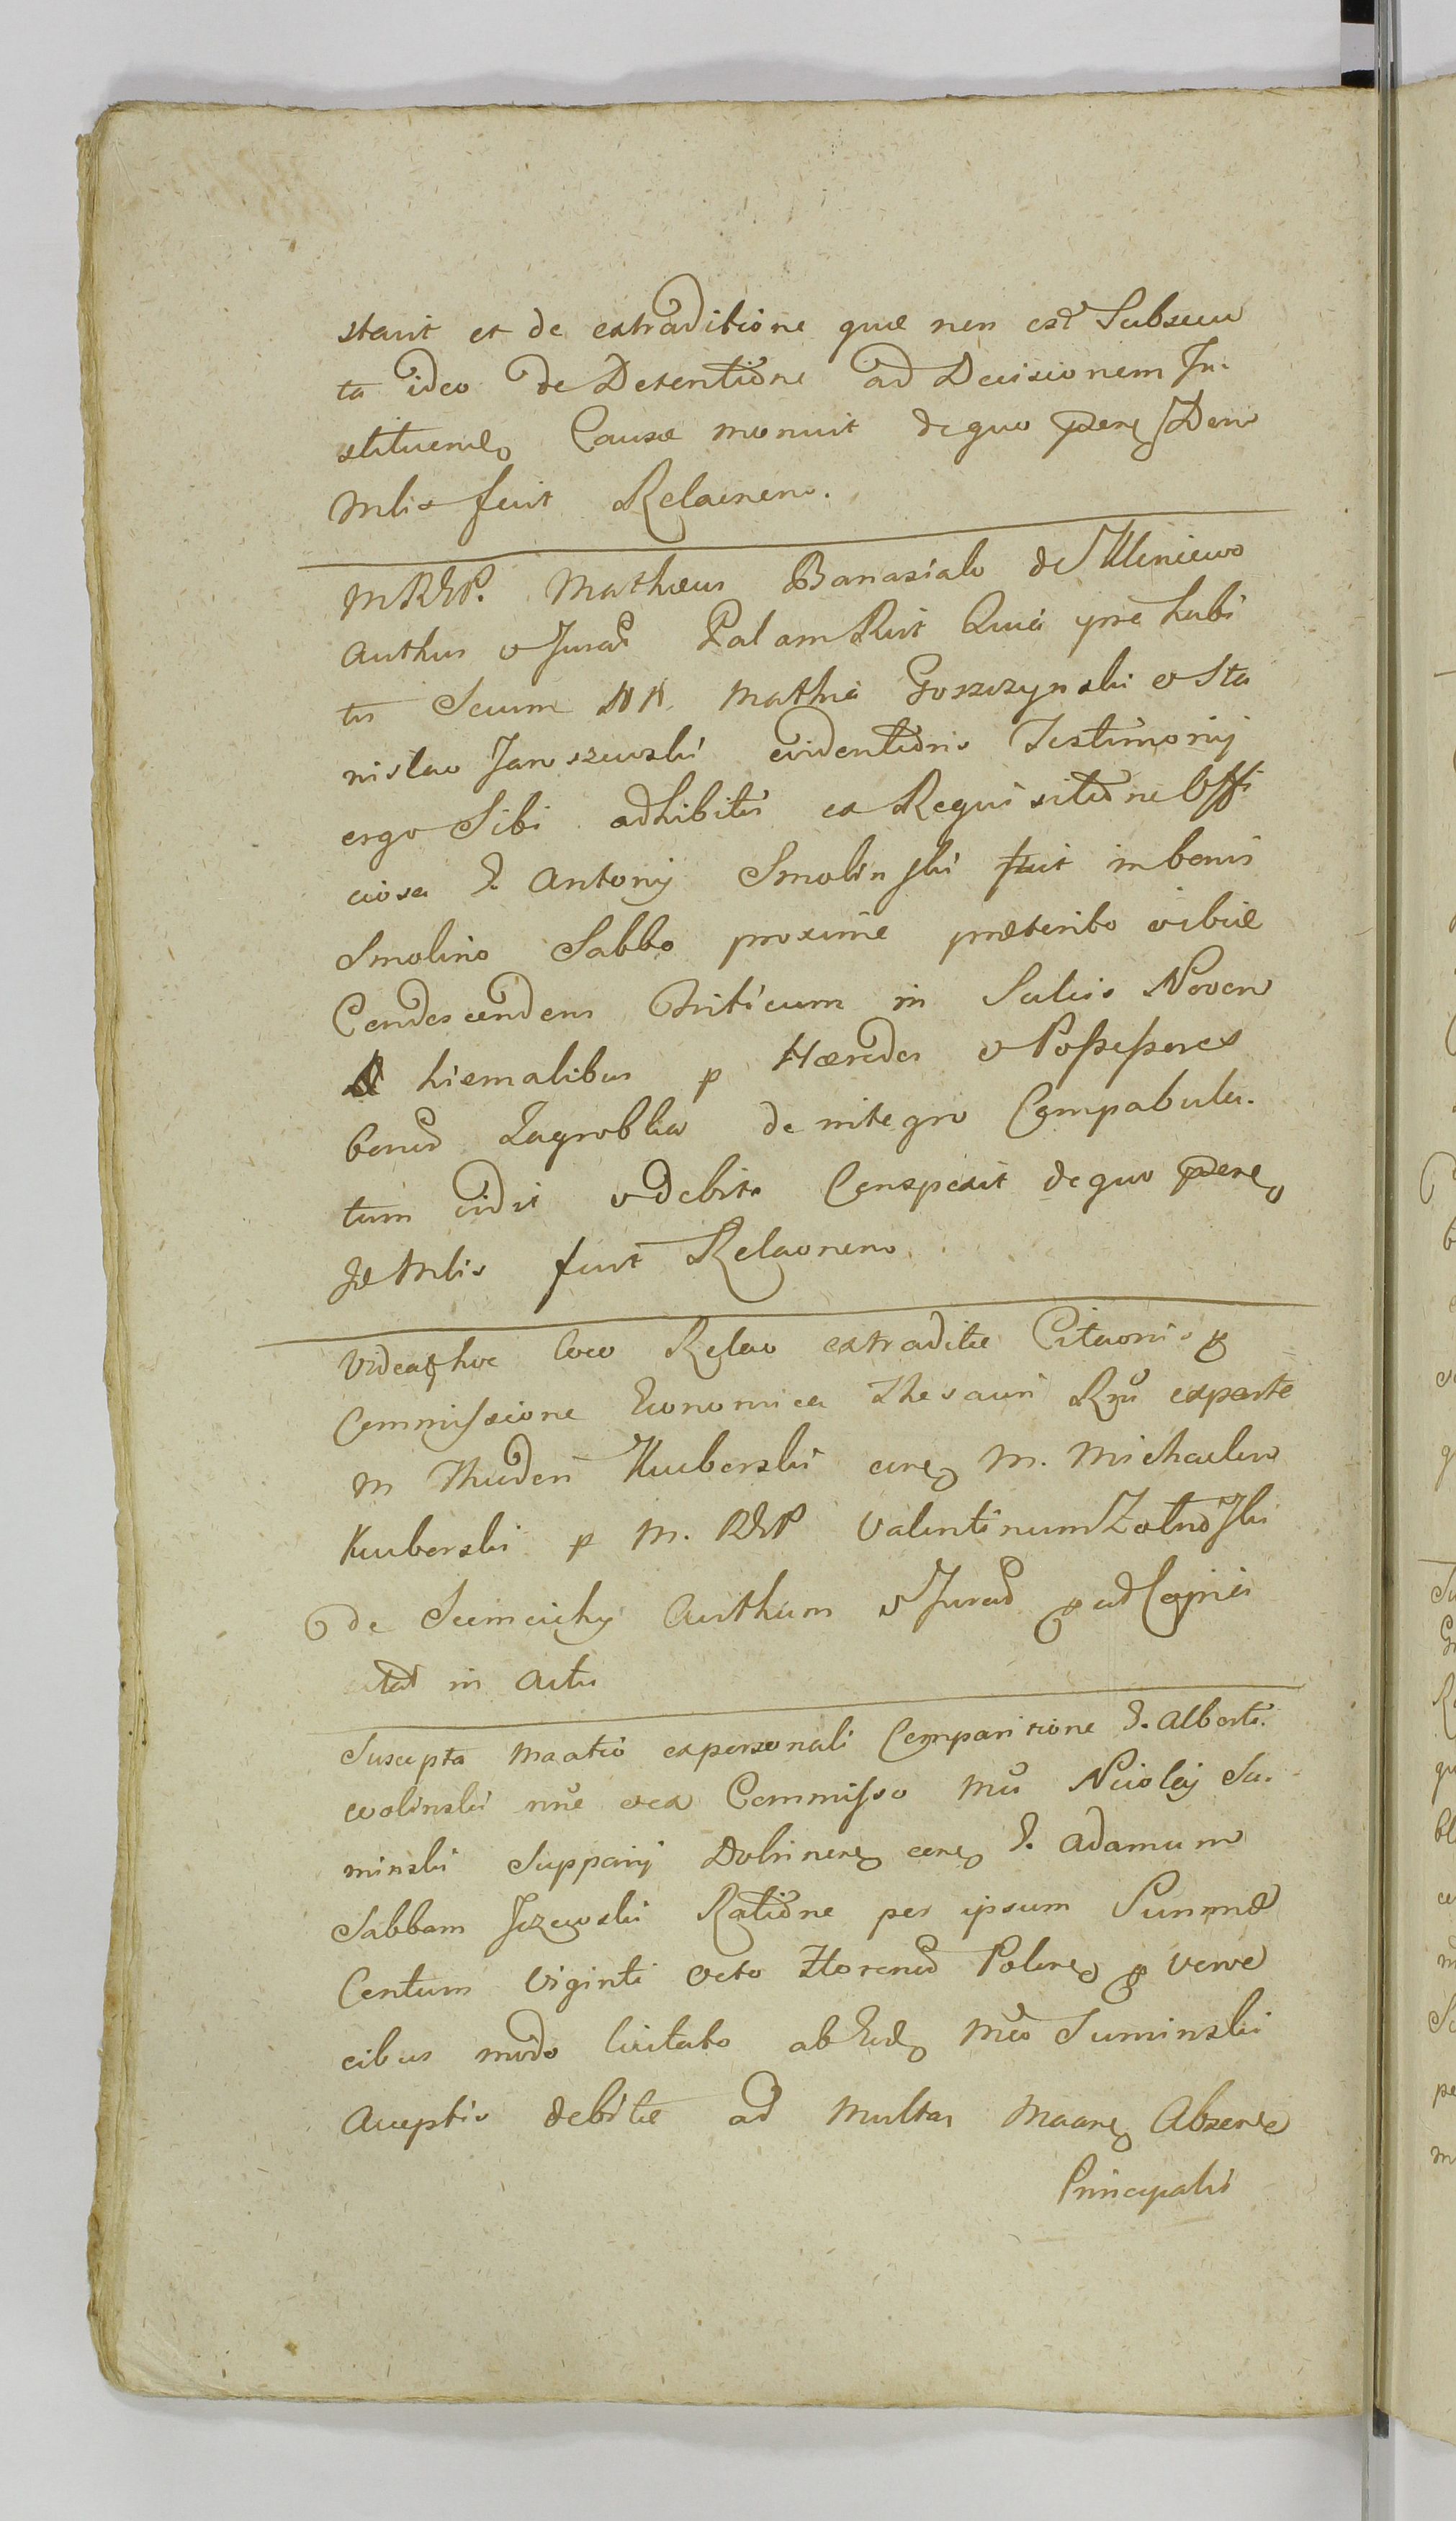 stavit et de extraditione quæ non est Subsecu
ta ideo de Detentione ad Decisionem In-
stituend Causæ monuit de quo præns Dom
Mlis fecit Relaonem.
MRGP. Mathæus Banasiak de Kliniewo
Authus et Jurat Palam Rvit Quia ipse habi
tis Secum NN. Mathia Goszczynski et Sta
nislao Janoszewski evidentioris Testimonij
ergo Sibi adhibitis ex Requisitione Offi
ciosa G. Antonij Smolinski fuit in bonis
Smolino Sabbo proxime præterito et ibiæ
Condescendens Triticum in Satis Noven
hiemalibus p Hæredes et Possessores
bonor Zagroblia de integro Compabula-
tum vidit et debite Conspexit de quo præns
Mlis fecit Relaonem
Videatr hoc loco Relao extraditæ Citaonis p
Commissione Economica Thesauri Rni ex parte
M Thuderi Kuberski cone M. Michaelem
Kuberski p M. RGP Valentinum Zolnowski
de Sumcichy Authum et Jurat p ad Copia
in Actis
Suscepta Maatio ex personali Comparitione G. Alberti
wolinski nne et ex Commisso Mci Nicolaj Su-
minski Supparij Dobrinens cone G. Adamum
Sabbam Jezewski Ratione per ipsum Summæ
Centum Viginti octo Florenor Polon p verve
cibus modo licitato ab Eod Mco Suminski
Acceptis debitæ ad multas Maane Absente
Principalis